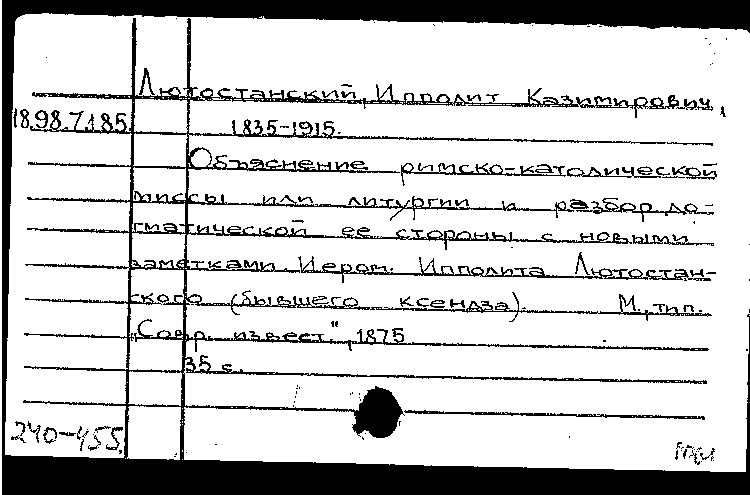 Лютостанский, Ипполит Казимирович,
18.98.7.185. 1835-1915.
Объяснение римско-католической
миссы или литургии и разбор до-
гматической ее стороны с новыми
заметками Иером. Ипполита Лютостан-
ского (бывшего ксендза). М., тип.
„Совр. извест.", 1875
35 с.
240-455.